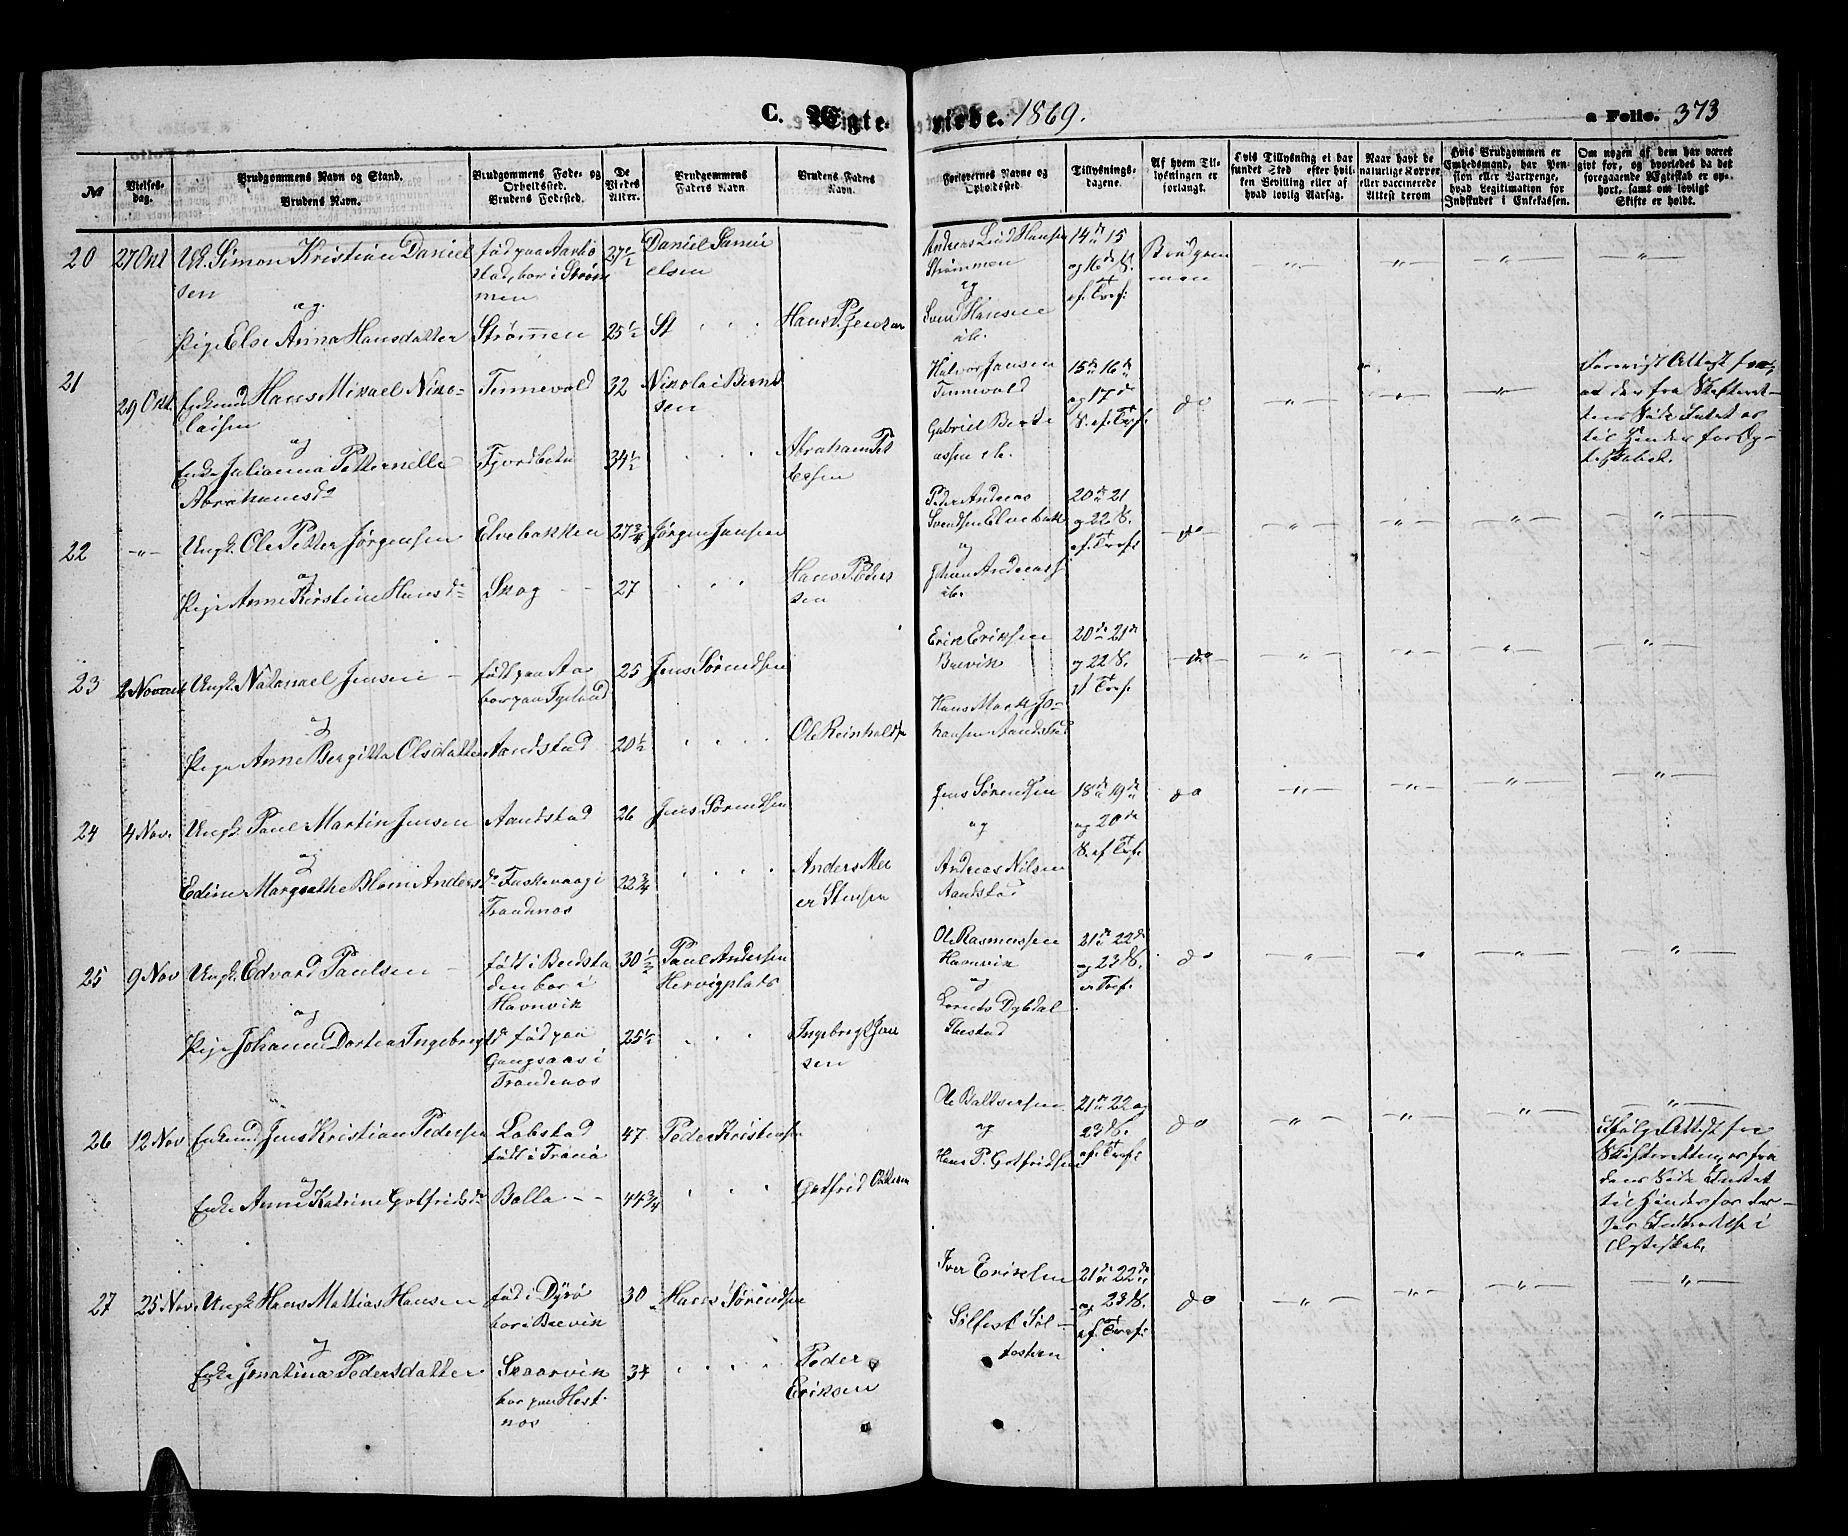 C. Ægte-viede. 1869.
a Folio. 373
№
Vielses-
dag.
Brudgommens Navn og Stand.
Brudens Navn.
Brudgommens Føde- og
Opholdssted.
Brudens Fødested.
De
Viedes
Alder.
Brudgommens
Faders Navn
Brudens Faders
Navn.
Forlovernes Navne og
Opholdssted.
Tillysnings-
dagene.
Af hvem Til-
lysningen er
forlangt.
Hvis Tillysning ei har
fundet Sted efter hvil-
ken Bevilling eller af
hvad lovlig Aarsag.
Naar havt de
naturlige Kopper
eller vaccinerede
Attest derom
Hvis Brudgommen er
Embedsmand, har Pen-
sion eller Vartpenge,
hvad Legitimation for
Indskudet i Enkekassen.
Om nogen af dem har været
givt før, og hvorledes da det
foregaaende Ægteskab er op-
hørt, samt om lovligt
Skifte er holdt.
20
27 Okt
Uk. Simon Kristian Daniel
sen
og
Pige Else Anna Hansdatter
født paa
stad, bor i Strøm
men
Strømmen
27 1/2
25 1/2
Daniel Samu
elsen
Hans P. Jensen
Andreas Lind Hansen
Strømmen
og
Hansen
ib.
14de 15
og 16de S.
ef. Tref.
Brudgom
men
21
29 Okt.
Enkemd Hans Mikael Niko-
laisen
og
Enke Julianna Petternille
Abrahamsdr
Tennevold
Fjordbotn
32
34 1/2
Nikolai Bernt
sen
Abraham Pet
tersen
Halvor Jensen
Tennevold
Gabriel Bert
assen ib.
15de 16de
og 17de
S. ef. Tref.
do
Forevist Attest for
at der fra Skifteret-
tens Side Intet er
til Hinder for Æg-
teskabet.
22
Ungk. Ole Petter Jørgensen
og
Pige Anne Kirstine Hansdr
Elvebakken
Skog
27 3/4
27
Jørgen Jensen
Hans Peder
sen
Peder Andreas
Svendsen Elvebak
og
Johan Andreas
ib.
20de 21
og 22 S.
ef. Tref.
do
23
2 Novemb
Ungk. Natanael Jensen
og
Pige Anne Bergitta Olsdatter
født paa Aa
bor paa
Aandstad
25
20 1/2
Jens Sørendsen
Ole Reinholds
Erik Eriksen
Brevik
Hans Mark Jo-
hansen Aandstad
20de 21de
og 22 S.
ef. Tref.
do
24
4 Nov.
Ungk. Paul Martin Jensen
og
Edine Margrethe Blom Anders
dr
Aandstad
Faskevaag i
Trondenæs
26
22 3/4
Jens Sørendsen
Anders Mei
er Stensen
Jens Sørendsen
og
Andreas Nilsen
Aandstad
18de 19de
og 20de
S. ef Tref.
do
25
9 Nov
Ungk. Edvard Paulsen
og
Pige Johanna Dortea Ingebrigt
dr
født i
den bor i
Havnvik
fød paa
Gangsaas i
Trondenæs
30 1/2
25 1/2
Paul Andersen
Hervigplads
Ingebrigt Jen
sen
Ole Rasmussen
Havnvik
og
Lorents Dybdal
Ibestad
21de 22de
og 23 S.
Tref.
do
26
12 Nov
Enkemd Jens Kristian Pedersen
og
Enke Anne Katrine Gotfridsdr
Løbstad
født i Tranø
Balla
47
44 3/4
Peder Kristensen
Gotfrid
Ole Baltsersen
og
Hans P. Gotfridsen
21de 22 og
23 S.
ef. Tref.
do
Ifølge Attest fra
Skifteretten er fra
dens Side Intet
til Hinder for der-
i
Ægteskab.
27
25 Nov.
Ungk. Hans Mattias Hansen
og
Enke Jonatina Pedersdatter
fød i Dyrø
bor i Brevik
Skaarvik
bor paa Hest-
nes
30
34
Hans Sørendsen
Peder
Eriksen
Iver Eriksen
Sølfest Søl-
festsen
21de 22de
og 23 S.
ef. Tref.
do